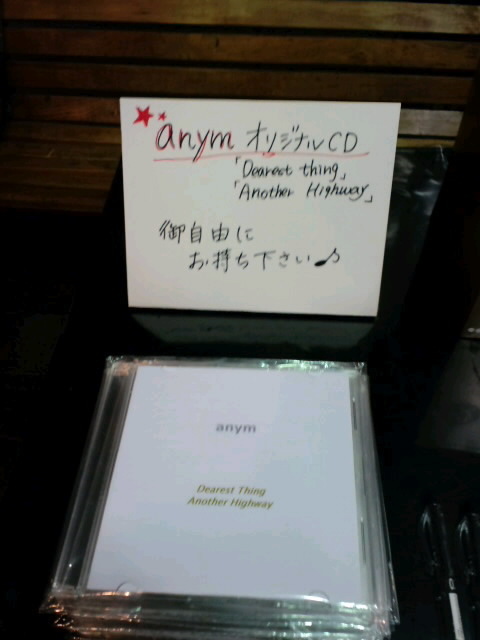 anym オリジナルCD
「Dearest thing」
「Another Highway」
御自由に
お持ち下さい♪
anym
Dearest Thing
Another Highway